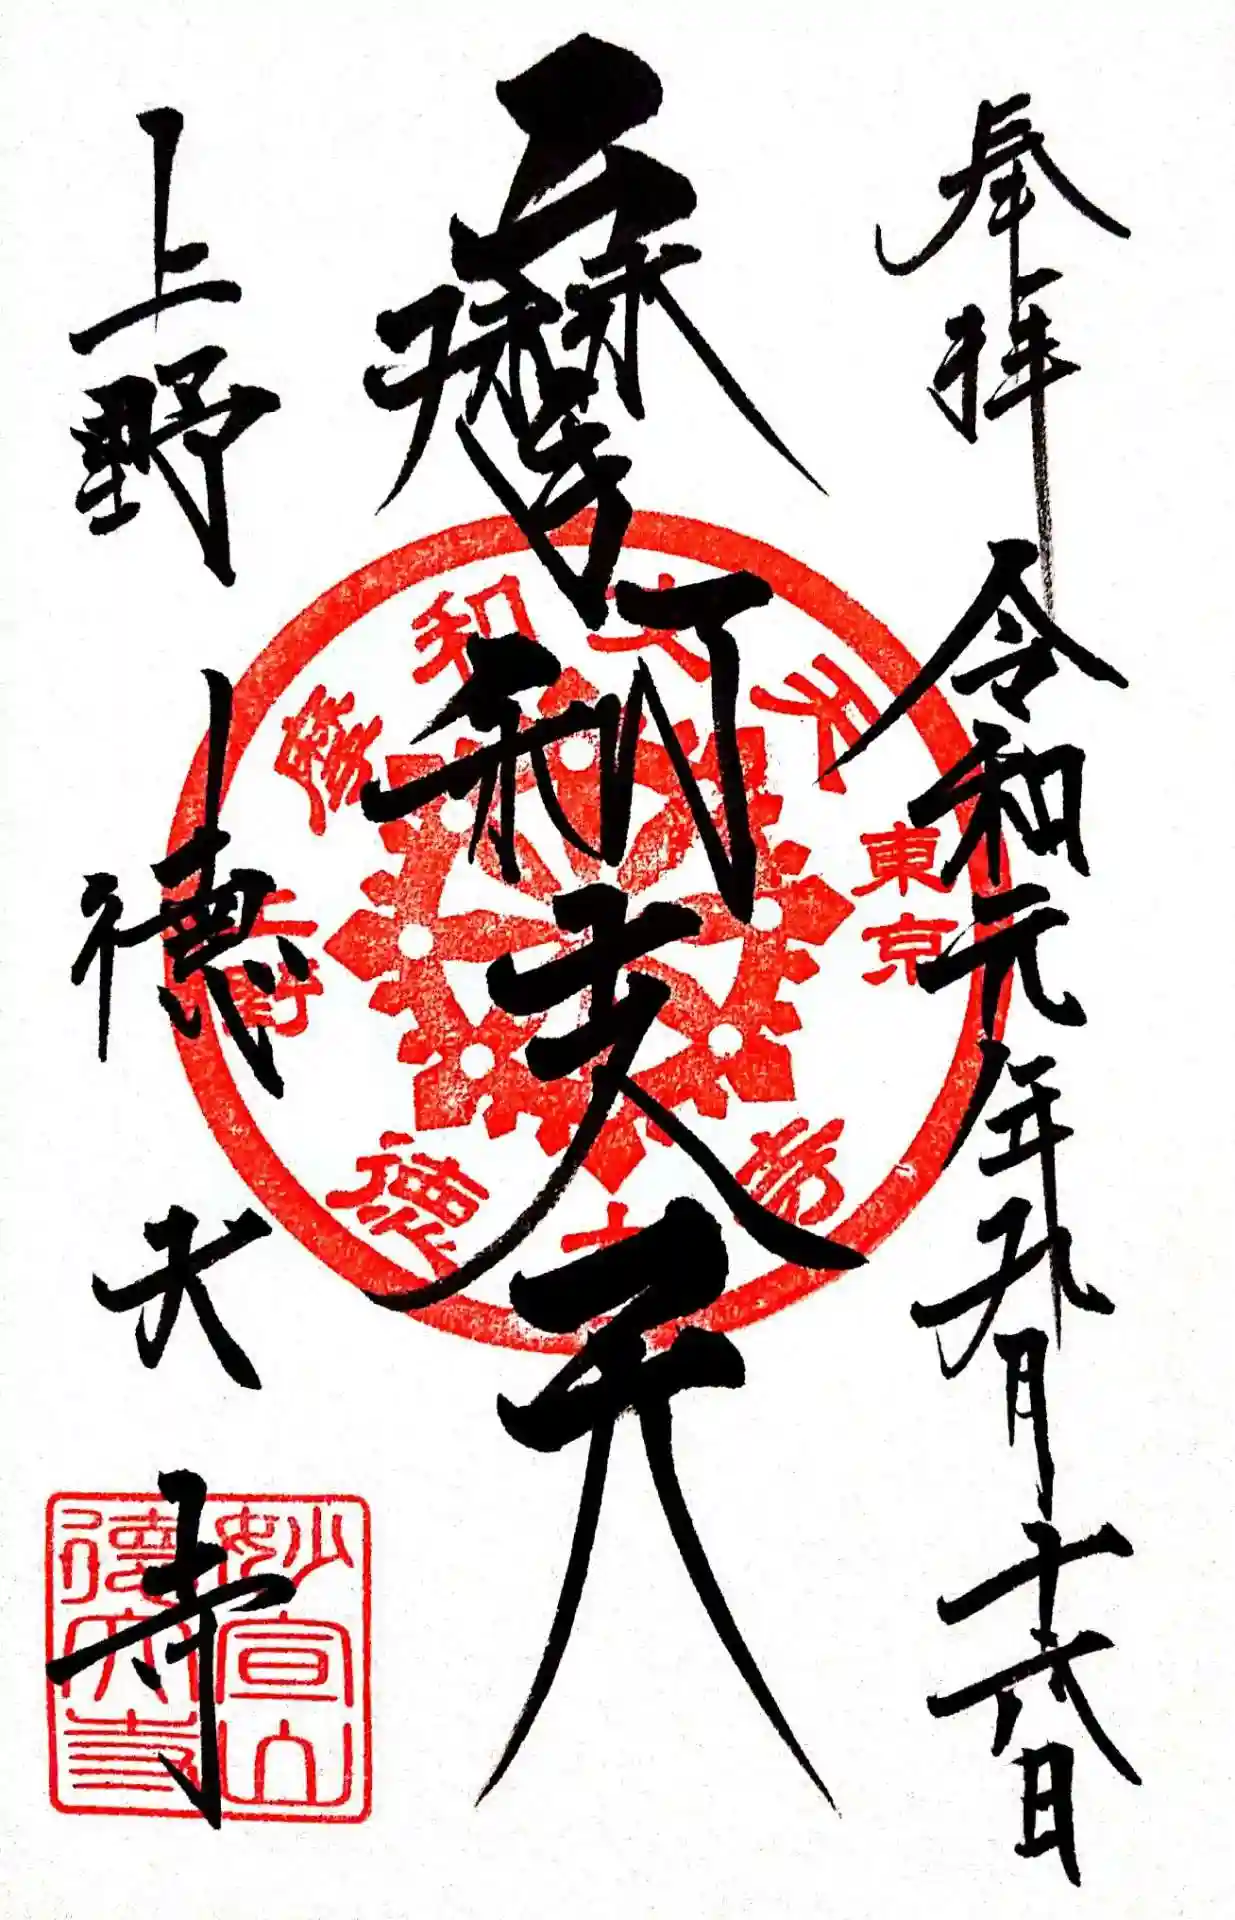 奉拝 令和元年九月十六日
摩利支天
上野 徳大寺
東京
妙宣山
徳大寺